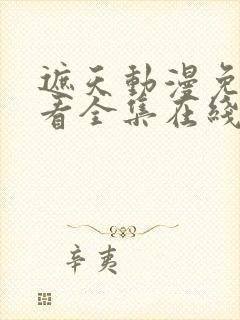 遮天動漫免
看全集在綫
辛夷